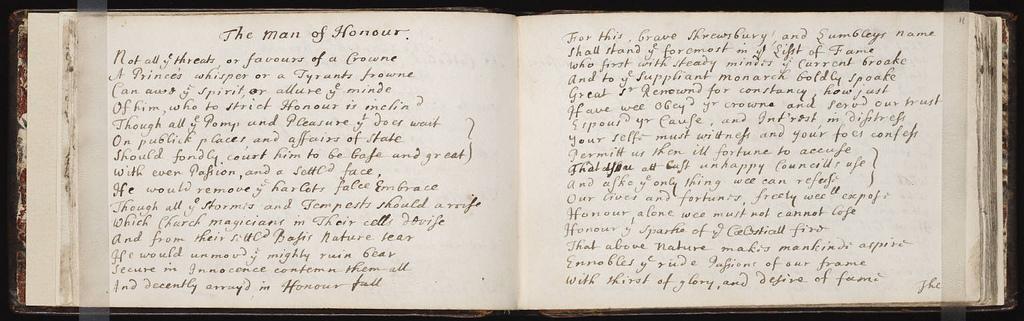 The man of Honour.
Not all yͤ threats or favours of a Crowne
A Princes whisper or a Tyrants frowne
Can awe yͤ spirit or allure yͤ minde
Of him, who to strict Honour is inclin'd
Though all yͤ Pomp and Pleasure yͭ does wait
On publick places, and affairs of State
Should fondly court him to be base and great
With even Passion, and a settl'd face,
He would remove yͤ harlots false Embrace
Though all yͤ stormes and Tempests should arrise
Which Church magicians in Their cells devise
And from their settl'd Basis Nature tear
He would unmov'd yͤ mighty ruin bear
Secure in Innocence contemn them all
And decently array'd in Honour fall
11
For this, brave Shrewsbury and Lumbleys name
Shall stand yͤ foremost in yͤ List of Fame
Who first with steady mindes yͤ Current broake
And to yͤ suppliant monarch boldly spoake
Great Sr Renown'd for constancy, how just
Have wee obey'd yr crowne and serv'd our trust
Espous'd yr Cause, and Int'rest in distress
Your selfe must wittness and your foes confess
Permitt us then ill fortune to accuse
That att last unhappy Councills use
And aske yͤ only thing wee can refuse
Our lives and fortunes, freely wee'll expose
Honour alone wee must not cannot lose
Honour yͭ Sparke of yͤ Celestiall fire
That above Nature makes mankinde aspire
Ennobles yͤ rude Passions of our frame
With thirst of glory, and desire of fame
The